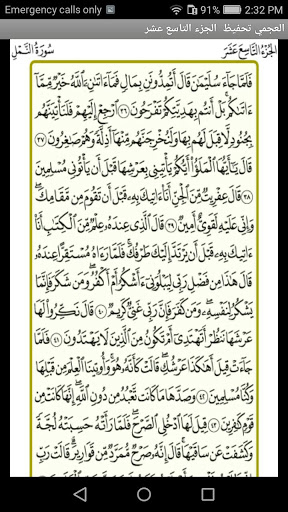 Emergency calls only 2:32 PM
العجمي تحفيظ الجزء التاسع عشر
الجزء التاسع عشر سورة النمل
فَلَمَّا جَاءَ سُلَيْمَانَ قَالَ أَتُمِدُّونَنِ بِمَالٍ فَمَا ءَاتَىٰنِۦَ ٱللَّهُ خَيْرٌ مِّمَّا
ءَاتَىٰكُم بَلْ أَنتُم بِهَدِيَّتِكُمْ تَفْرَحُونَ ٣٦ ٱرْجِعْ إِلَيْهِمْ فَلَنَأْتِيَنَّهُم
بِجُنُودٍ لَّا قِبَلَ لَهُم بِهَا وَلَنُخْرِجَنَّهُم مِّنْهَا أَذِلَّةً وَهُمْ صَٰغِرُونَ ٣٧
قَالَ يَٰٓأَيُّهَا ٱلْمَلَؤُا۟ أَيُّكُمْ يَأْتِينِى بِعَرْشِهَا قَبْلَ أَن يَأْتُونِى مُسْلِمِينَ
٣٨ قَالَ عِفْرِيتٌ مِّنَ ٱلْجِنِّ أَنَا۠ ءَاتِيكَ بِهِۦ قَبْلَ أَن تَقُومَ مِن مَّقَامِكَ
وَإِنِّى عَلَيْهِ لَقَوِىٌّ أَمِينٌ ٣٩ قَالَ ٱلَّذِى عِندَهُۥ عِلْمٌ مِّنَ ٱلْكِتَٰبِ أَنَا۠
ءَاتِيكَ بِهِۦ قَبْلَ أَن يَرْتَدَّ إِلَيْكَ طَرْفُكَ فَلَمَّا رَءَاهُ مُسْتَقِرًّا عِندَهُۥ
قَالَ هَٰذَا مِن فَضْلِ رَبِّى لِيَبْلُوَنِىٓ ءَأَشْكُرُ أَمْ أَكْفُرُ وَمَن شَكَرَ فَإِنَّمَا
يَشْكُرُ لِنَفْسِهِۦ وَمَن كَفَرَ فَإِنَّ رَبِّى غَنِىٌّ كَرِيمٌ ٤٠ قَالَ نَكِّرُوا۟ لَهَا
عَرْشَهَا نَنظُرْ أَتَهْتَدِىٓ أَمْ تَكُونُ مِنَ ٱلَّذِينَ لَا يَهْتَدُونَ ٤١ فَلَمَّا
جَاءَتْ قِيلَ أَهَٰكَذَا عَرْشُكِ قَالَتْ كَأَنَّهُۥ هُوَ وَأُوتِينَا ٱلْعِلْمَ مِن قَبْلِهَا
وَكُنَّا مُسْلِمِينَ ٤٢ وَصَدَّهَا مَا كَانَت تَّعْبُدُ مِن دُونِ ٱللَّهِ إِنَّهَا كَانَتْ مِن
قَوْمٍ كَٰفِرِينَ ٤٣ قِيلَ لَهَا ٱدْخُلِى ٱلصَّرْحَ فَلَمَّا رَأَتْهُ حَسِبَتْهُ لُجَّةً
وَكَشَفَتْ عَن سَاقَيْهَا قَالَ إِنَّهُۥ صَرْحٌ مُّمَرَّدٌ مِّن قَوَارِيرَ قَالَتْ رَبِّ